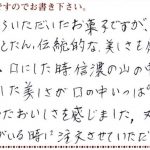 ですのでお書き下さい。
らいただいたお菓子ですが、
とたん、伝統的な、美しさを
口にした時信濃の山の
した美しさが口の中いっぱ
たおいしさを感じました。
がいる時に注文させていただ